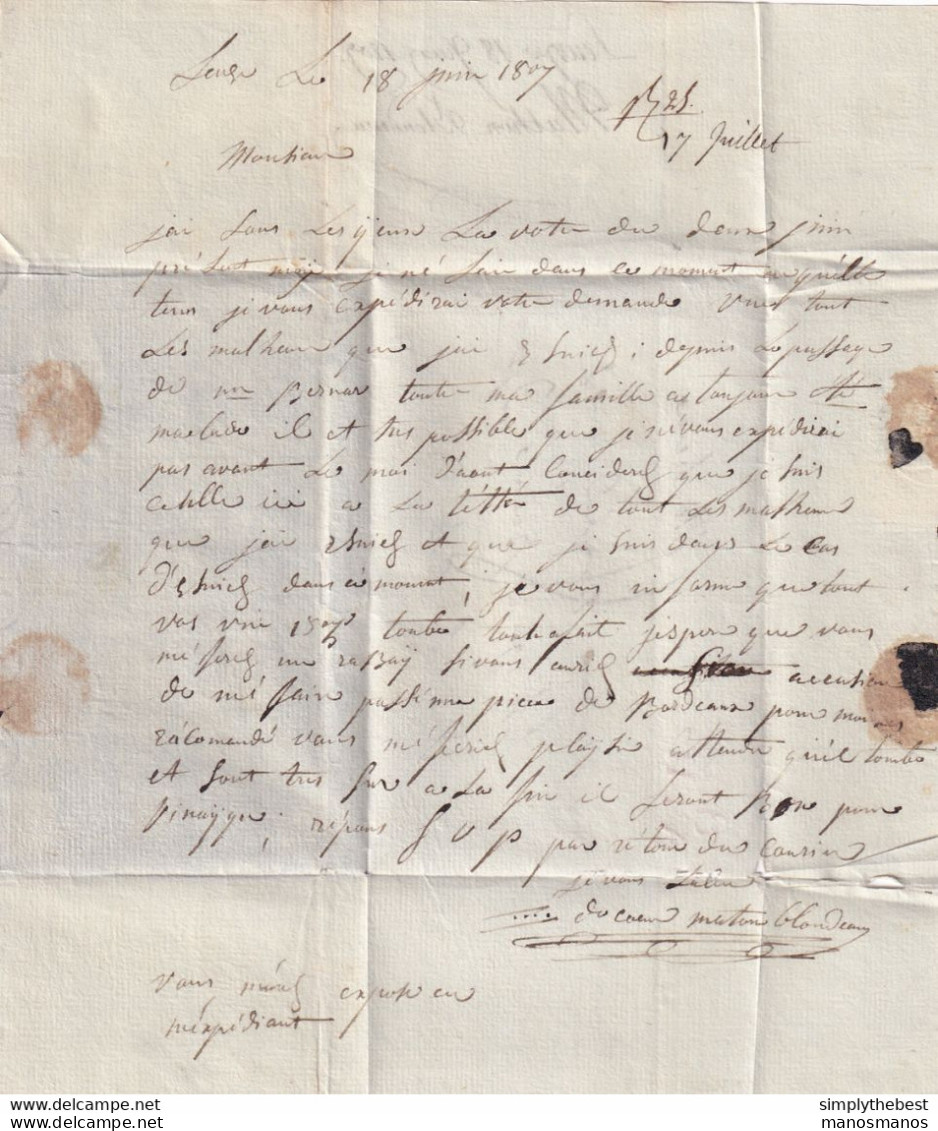 Leuze Le 18 juin 1807
R 25.
17 Juillet
Monsieur
jai sous Les yeux La votre du deux juin
présent moy je né sair dans ce moment en quélle
tems je vous expédirai votre demande vues tout
Les malheur que jai depuis Le passage
de mr Bernar toute ma famille es toujour
malade il et tres possible que je névous expédirai
pas avant Le moi d'aout Considerez que je suis
ici a La tétte de tout Les malheur
que jai et que je suis dans Le Cas
dans cé moment, je vous informe que tout
vos vin tombé toutafait jesper que vous
méferez un rabay si vous auriez occasion
de mé fair passé une piece de Bordeaux pour mon
récomandé vous méferiez playsir attendu qu'il tombe
et sont tres sur a La fin il seront Bon pour
vinaygre, répons S V P par rétour du Courier
je vous salue
de coeur maton blondeau
vous expose en
méxpédiant
simplythebest
manosmanos